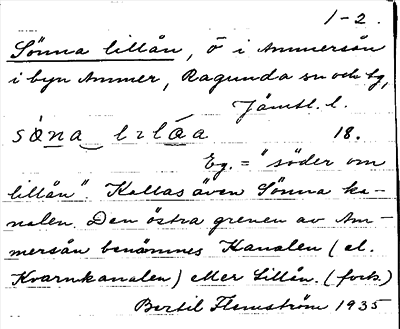 1-2.
Sönna lillån, ö i Ammersån
i byn Ammer, Ragunda sn och tg,
Jämtl. l.
söna lılåa 18.
Eg. = "söder om
lillån". Kallas även Sönna ka-
nalen. Den östra grenen av Am-
mersån benämnes Kanalen (el.
Kvarnkanalen) eller Lillån. (forts.)
Bertil Flemström 1935